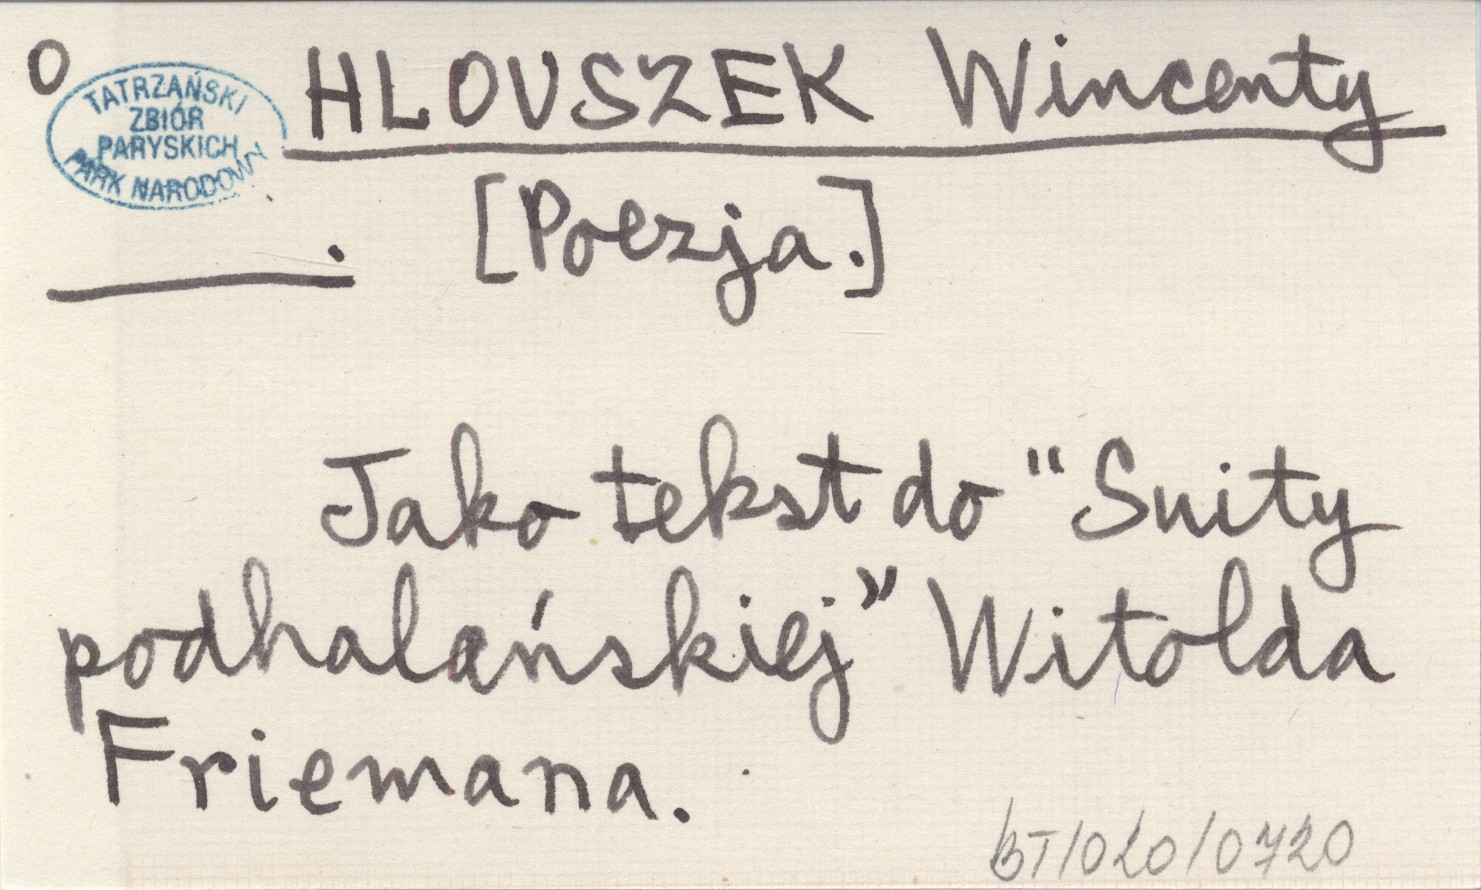 O
TATRZAŃSKI
ZBIÓR
PARYSKICH
PARK NARODOWY
HLOUSZEK Wincenty
[Poezja.]
Jako tekst do "Suity
podhalańskiej" Witolda
Friemana.
BT/020/0720